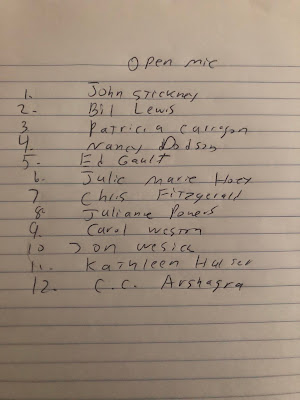 Open mic
1. John Stickney
2. Bill Lewis
3 Patricia Carragon
4. Nancy Dodson
5. Ed Gault
6. Julie Marie
7 Chris Fitzgerald
8. Julianne Powers
9. Carol Weston
10 Jon Wesick
11. Kathleen
12. C.C. Arshagra